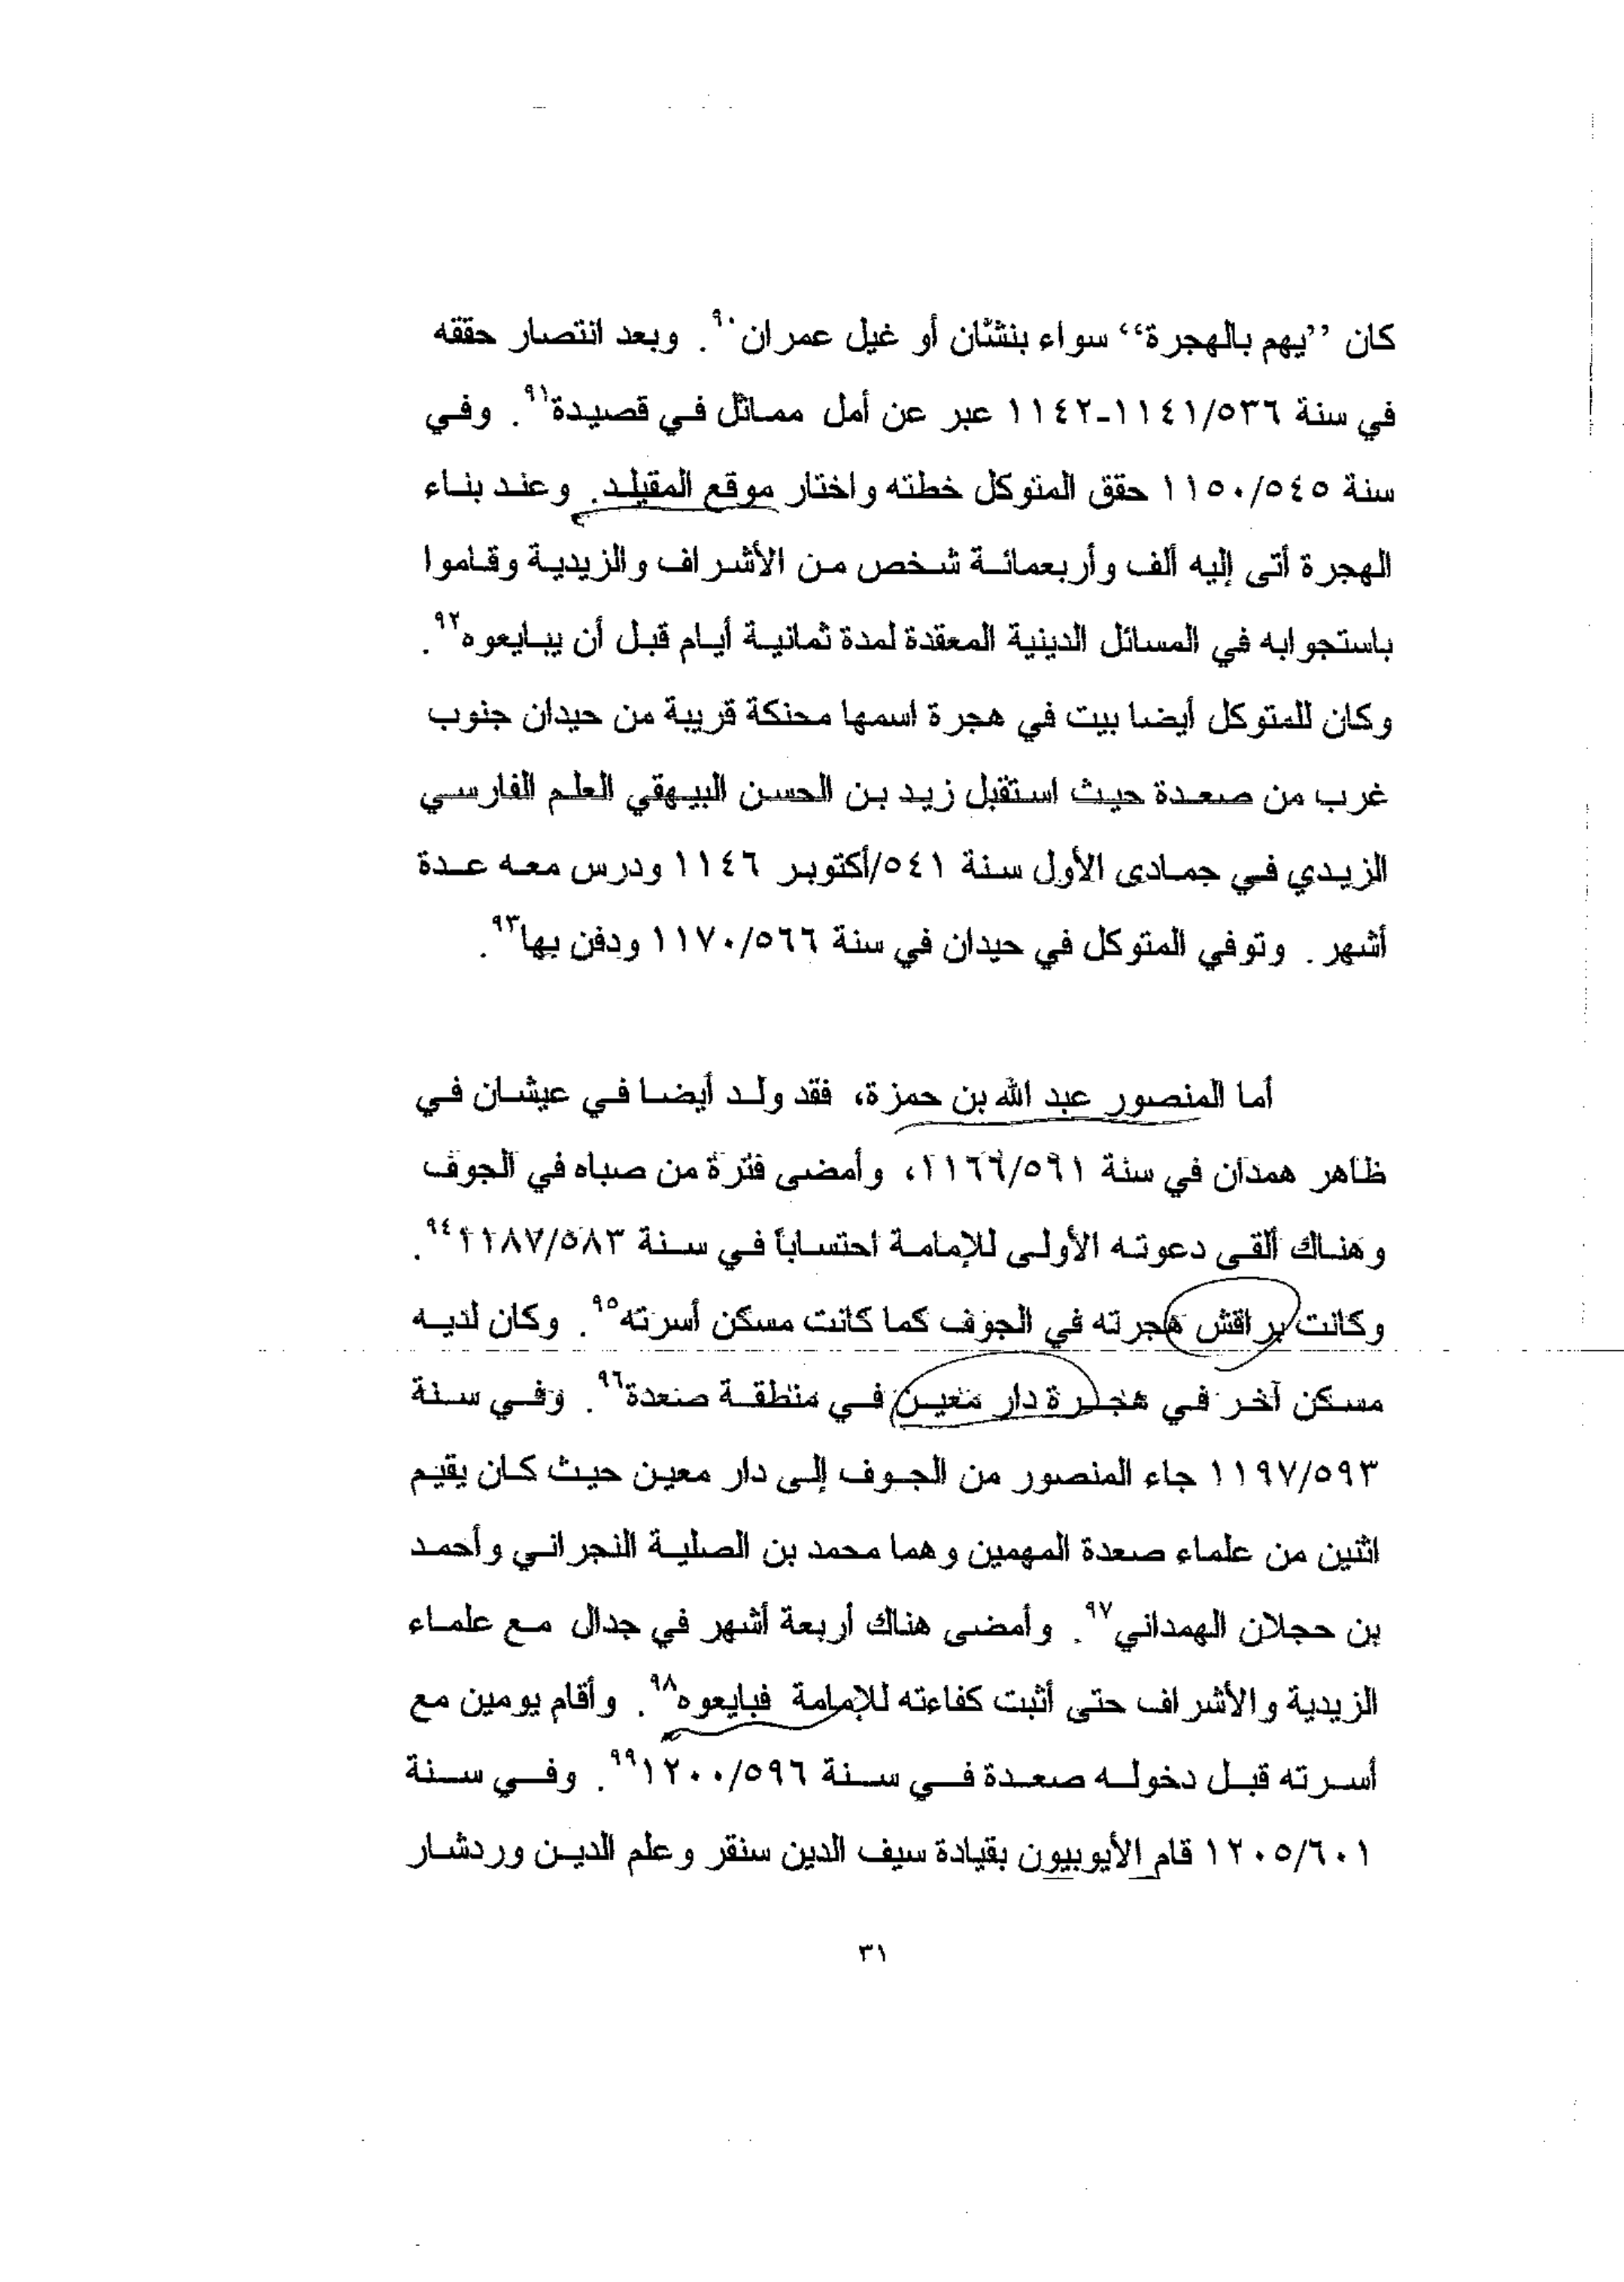 كان ’’يهم بالهجرة‘‘ سواء بنشّان أو غيل عمران٩٠. وبعد انتصار حققه
في سنة ٥٣٦/١١٤١-١١٤٢ عبر عن أمل مماثل في قصيدة٩١. وفي
سنة ٥٤٥/١١٥٠ حقق المتوكل خطته واختار موقع المقيلد. وعند بناء
الهجرة أتى إليه ألف وأربعمائة شخص من الأشراف والزيدية وقاموا
باستجوابه في المسائل الدينية المعقدة لمدة ثمانية أيام قبل أن يبايعوه٩٢.
وكان للمتوكل أيضا بيت في هجرة اسمها محنكة قريبة من حيدان جنوب
غرب من صعدة حيث استقبل زيد بن الحسن البيهقي العلم الفارسي
الزيدي في جمادى الأول سنة ٥٤١/أكتوبر ١١٤٦ ودرس معه عدة
أشهر. وتوفي المتوكل في حيدان في سنة ٥٦٦/١١٧٠ ودفن بها٩٣.
أما المنصور عبد الله بن حمزة، فقد ولد أيضا في عيشان في
ظاهر همدان في سنة ٥٩١/١١٦٦، وأمضى فترة من صباه في الجوف
وهناك ألقى دعوته الأولى للإمامة احتساباً في سنة ٥٨٣/١١٨٧٩٤.
وكانت براقش هجرته في الجوف كما كانت مسكن أسرته٩٥. وكان لديه
مسكن آخر في هجرة دار معين في منطقة صعدة٩٦. وفي سنة
٥٩٣/١١٩٧ جاء المنصور من الجوف إلى دار معين حيث كان يقيم
اثنين من علماء صعدة المهمين وهما محمد بن الصلية النجراني وأحمد
بن حجلان الهمداني٩٧. وأمضى هناك أربعة أشهر في جدال مع علماء
الزيدية والأشراف حتى أثبت كفاءته للإمامة فبايعوه٩٨. وأقام يومين مع
أسرته قبل دخوله صعدة في سنة ٥٩٦/١٢٠٠٩٩. وفي سنة
٦٠١/١٢٠٥ قام الأيوبيون بقيادة سيف الدين سنقر وعلم الدين وردشار
٣١